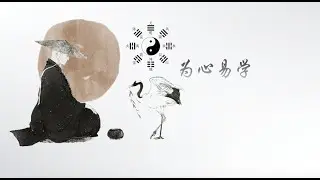 为心易学